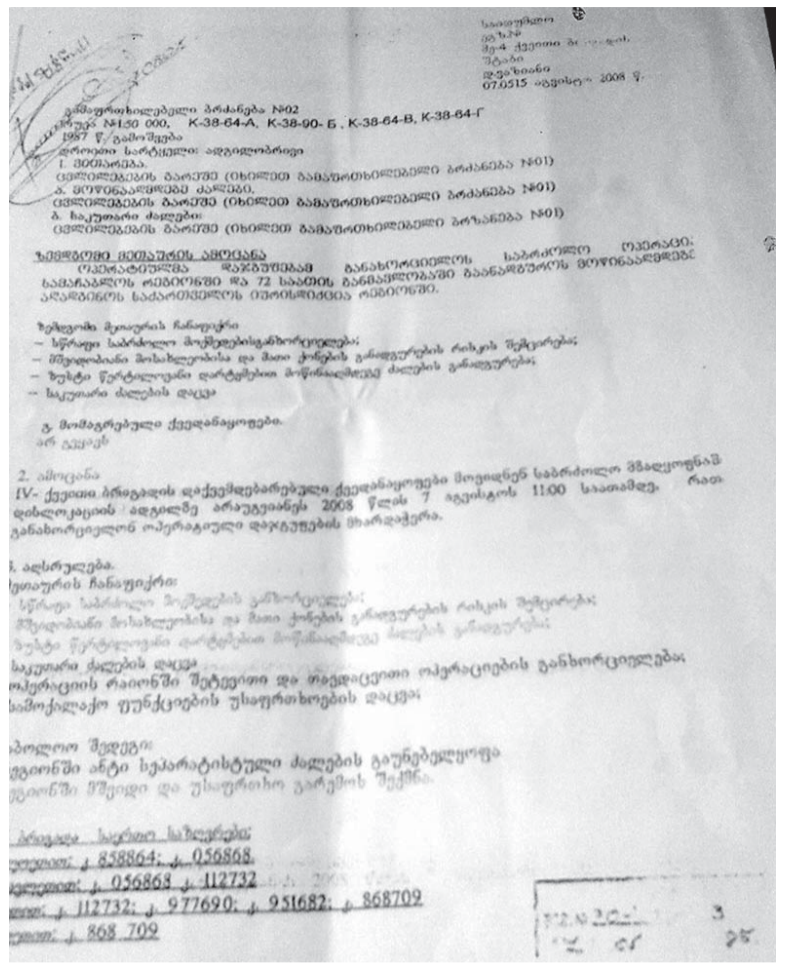 საიდუმლო
ეგზ.№
მე-4 ქვეითი
შტაბი
ვაზიანი
07.0515 აგვისტო 2008 წ.
გამაფრთხილებელი ბრძანება №02
რუკა №1:50 000, К-38-64-А, К-38-90- Б , К-38-64-В, К-38-64-Г
1987 წ. გამოშვება
დროითი სარტყელი: ადგილობრივი
1. ვითარება.
ცვლილებების გარეშე (იხილეთ გამაფრთხილებელი ბრძანება №01)
ა. მოწინააღმდეგე ძალები.
ცვლილებების გარეშე (იხილეთ გამაფრთხილებელი ბრძანება №01)
ბ. საკუთარი ძალები:
ცვლილებების გარეშე (იხილეთ გამაფრთხილებელი ბრძანება №01)
ზემდგომი მეთაურის ამოცანა
ოპერატიულმა დაჯგუფებამ განახორციელოს საბრძოლო ოპერაცი
სამაჩაბლოს რეგიონში და 72 საათის განმავლობაში გაანადგუროს მოწინააღმდეგე
აღადგინოს საქართველოს იურისდიქცია რეგიონში.
ზემდგომი მეთაურის ჩანაფიქრი
– სწრაფი საბრძოლო მოქმედებისგანხორციელება;
– მშვიდობიანი მოსახლეობისა და მათი ქონების განადგურების რისკის შემცირება;
– ზუსტი წერტილოვანი დარტყმებით მოწინააღმდეგე ძალების განადგურება;
– საკუთარი ძალების დაცვა
გ. მომაგრებული ქვედანაყოფები.
არ გვყავს
2. ამოცანა
IV- ქვეითი ბრიგადის დაქვემდებარებული ქვედანაყოფები მოვიდნენ საბრძოლო მზადყოფნაშ
დისლოკაციის ადგილზე არაუგვიანეს 2008 წლის 7 აგვისტოს 11:00 საათამდე, რათ
განახორციელონ ოპერატიული დაჯგუფების მხარდაჭერა.
. აღსრულება.
მეთაურის ჩანაფიქრი:
სწრაფი საბრძოლო მოქმედების განხორციელება;
მშვიდობიანი მოსახლეობისა და მათი ქონების განადგურების რისკის შემცირება;
ზუსტი წერტილოვანი დარტყმებით მოწინააღმდეგე ძალების განადგურება;
საკუთარი ძალების დაცვა
ოპერაციის რაიონში შეტევითი და თავდაცვითი ოპერაციების განხორციელება;
სამოქალაქო ფუნქციების უსაფრთხოების დაცვა;
აბოლოო შედეგი:
ეგიონში ანტი სეპარატისტული ძალების გაუნებელყოფა
ეგიონში მშვიდი და უსაფრთხო გარემოს შექმნა.
ბრიგადა საერთო საზღვრები:
კ. 858864; კ. 056868.
კ. 056868 კ. 112732
კ. 112732; კ. 977690; კ. 951682; კ. 868709
კ. 868 709